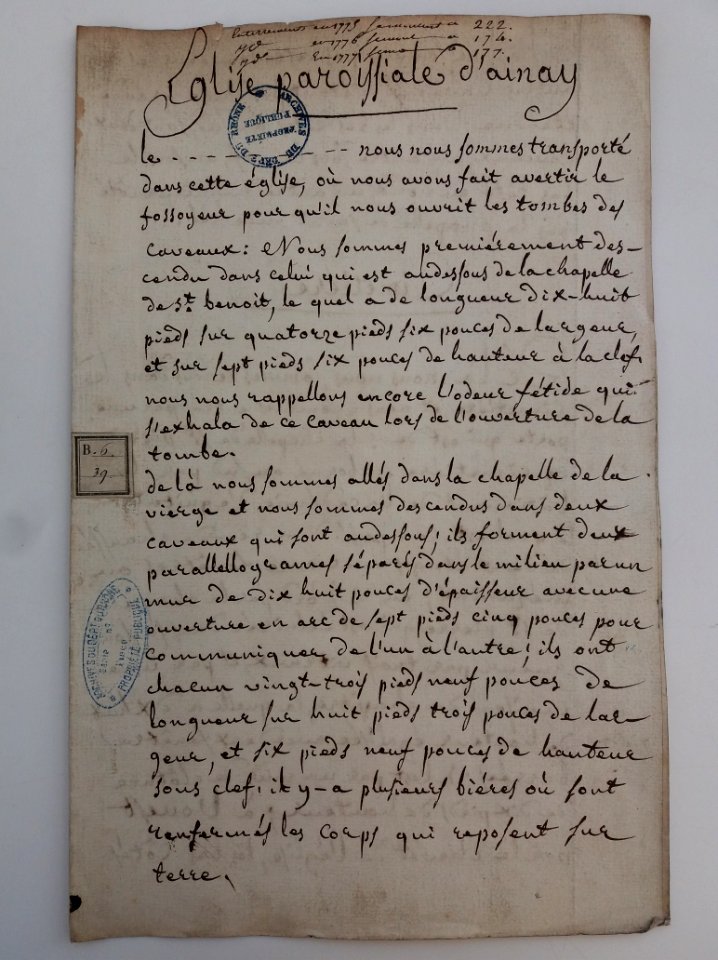 Enterrements en 1775 se montent a 222.
yd. en 1776 se monte a 174.
yd. En 1777 se monte a 177.
Eglise paroissiale d'ainay
ARCHIVES DU DEPT. DU RHONE
PROPRIÉTÉ PUBLIQUE
le - - - - - - - - - - nous nous sommes transporté
dans cette église, où nous avons fait avertir le
fossoyeur pour qu'il nous ouvrit les tombes des
caveaux: Nous sommes premiérement des-
cendu dans celui qui est audessous de la chapelle
de St. benoit, le quel a de longueur dix-huit
pieds sur quatorze pieds six pouces de largeur,
et sur sept pieds six pouces de hauteur à la clef,
nous nous rappellons encore l'odeur fétide qui
s'exhala de ce caveau lors de l'ouverture de la
tombe.
B. 6.
39
de là nous sommes allés dans la chapelle de la
vierge et nous sommes descendus dans deux
caveaux qui sont audessous; ils forment deux
parallellogrames séparés dans le milieu par un
mur de dix huit pouces d'épaisseur avec une
ouverture en arc de sept pieds cinq pouces pour
communiquer de l'un à l'autre; ils ont
chacun vingt-trois pieds neuf pouces de
longueur sur huit pieds trois pouces de lar-
geur, et six pieds neuf pouces de hauteur
sous clef, il y-a plusieurs biéres où sont
renfermés les corps qui reposent sur
terre.
ARCHIVES DU DÉPT DU RHONE
PROPRIÉTÉ PUBLIQUE